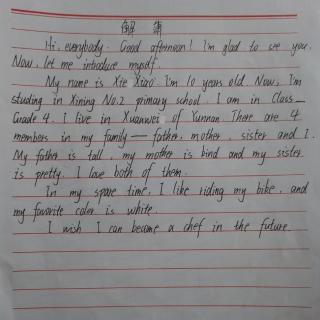 Hi, everybody. Good afternoon! I'm glad to see you.
Now, let me introduce myself.
My name is Xie Xiao. I'm 10 years old. Now, I'm
studing in Xining No.2 primary school. I am in Class_
Grade 4. I live in Xuanwei of Yunnan. There are 4
members in my family — father, mother, sister and I.
My father is tall, my mother is kind and my sister
is pretty. I love both of them.
In my spare time, I like riding my bike, and
my favorite color is white.
I wish I can become a chef in the future.